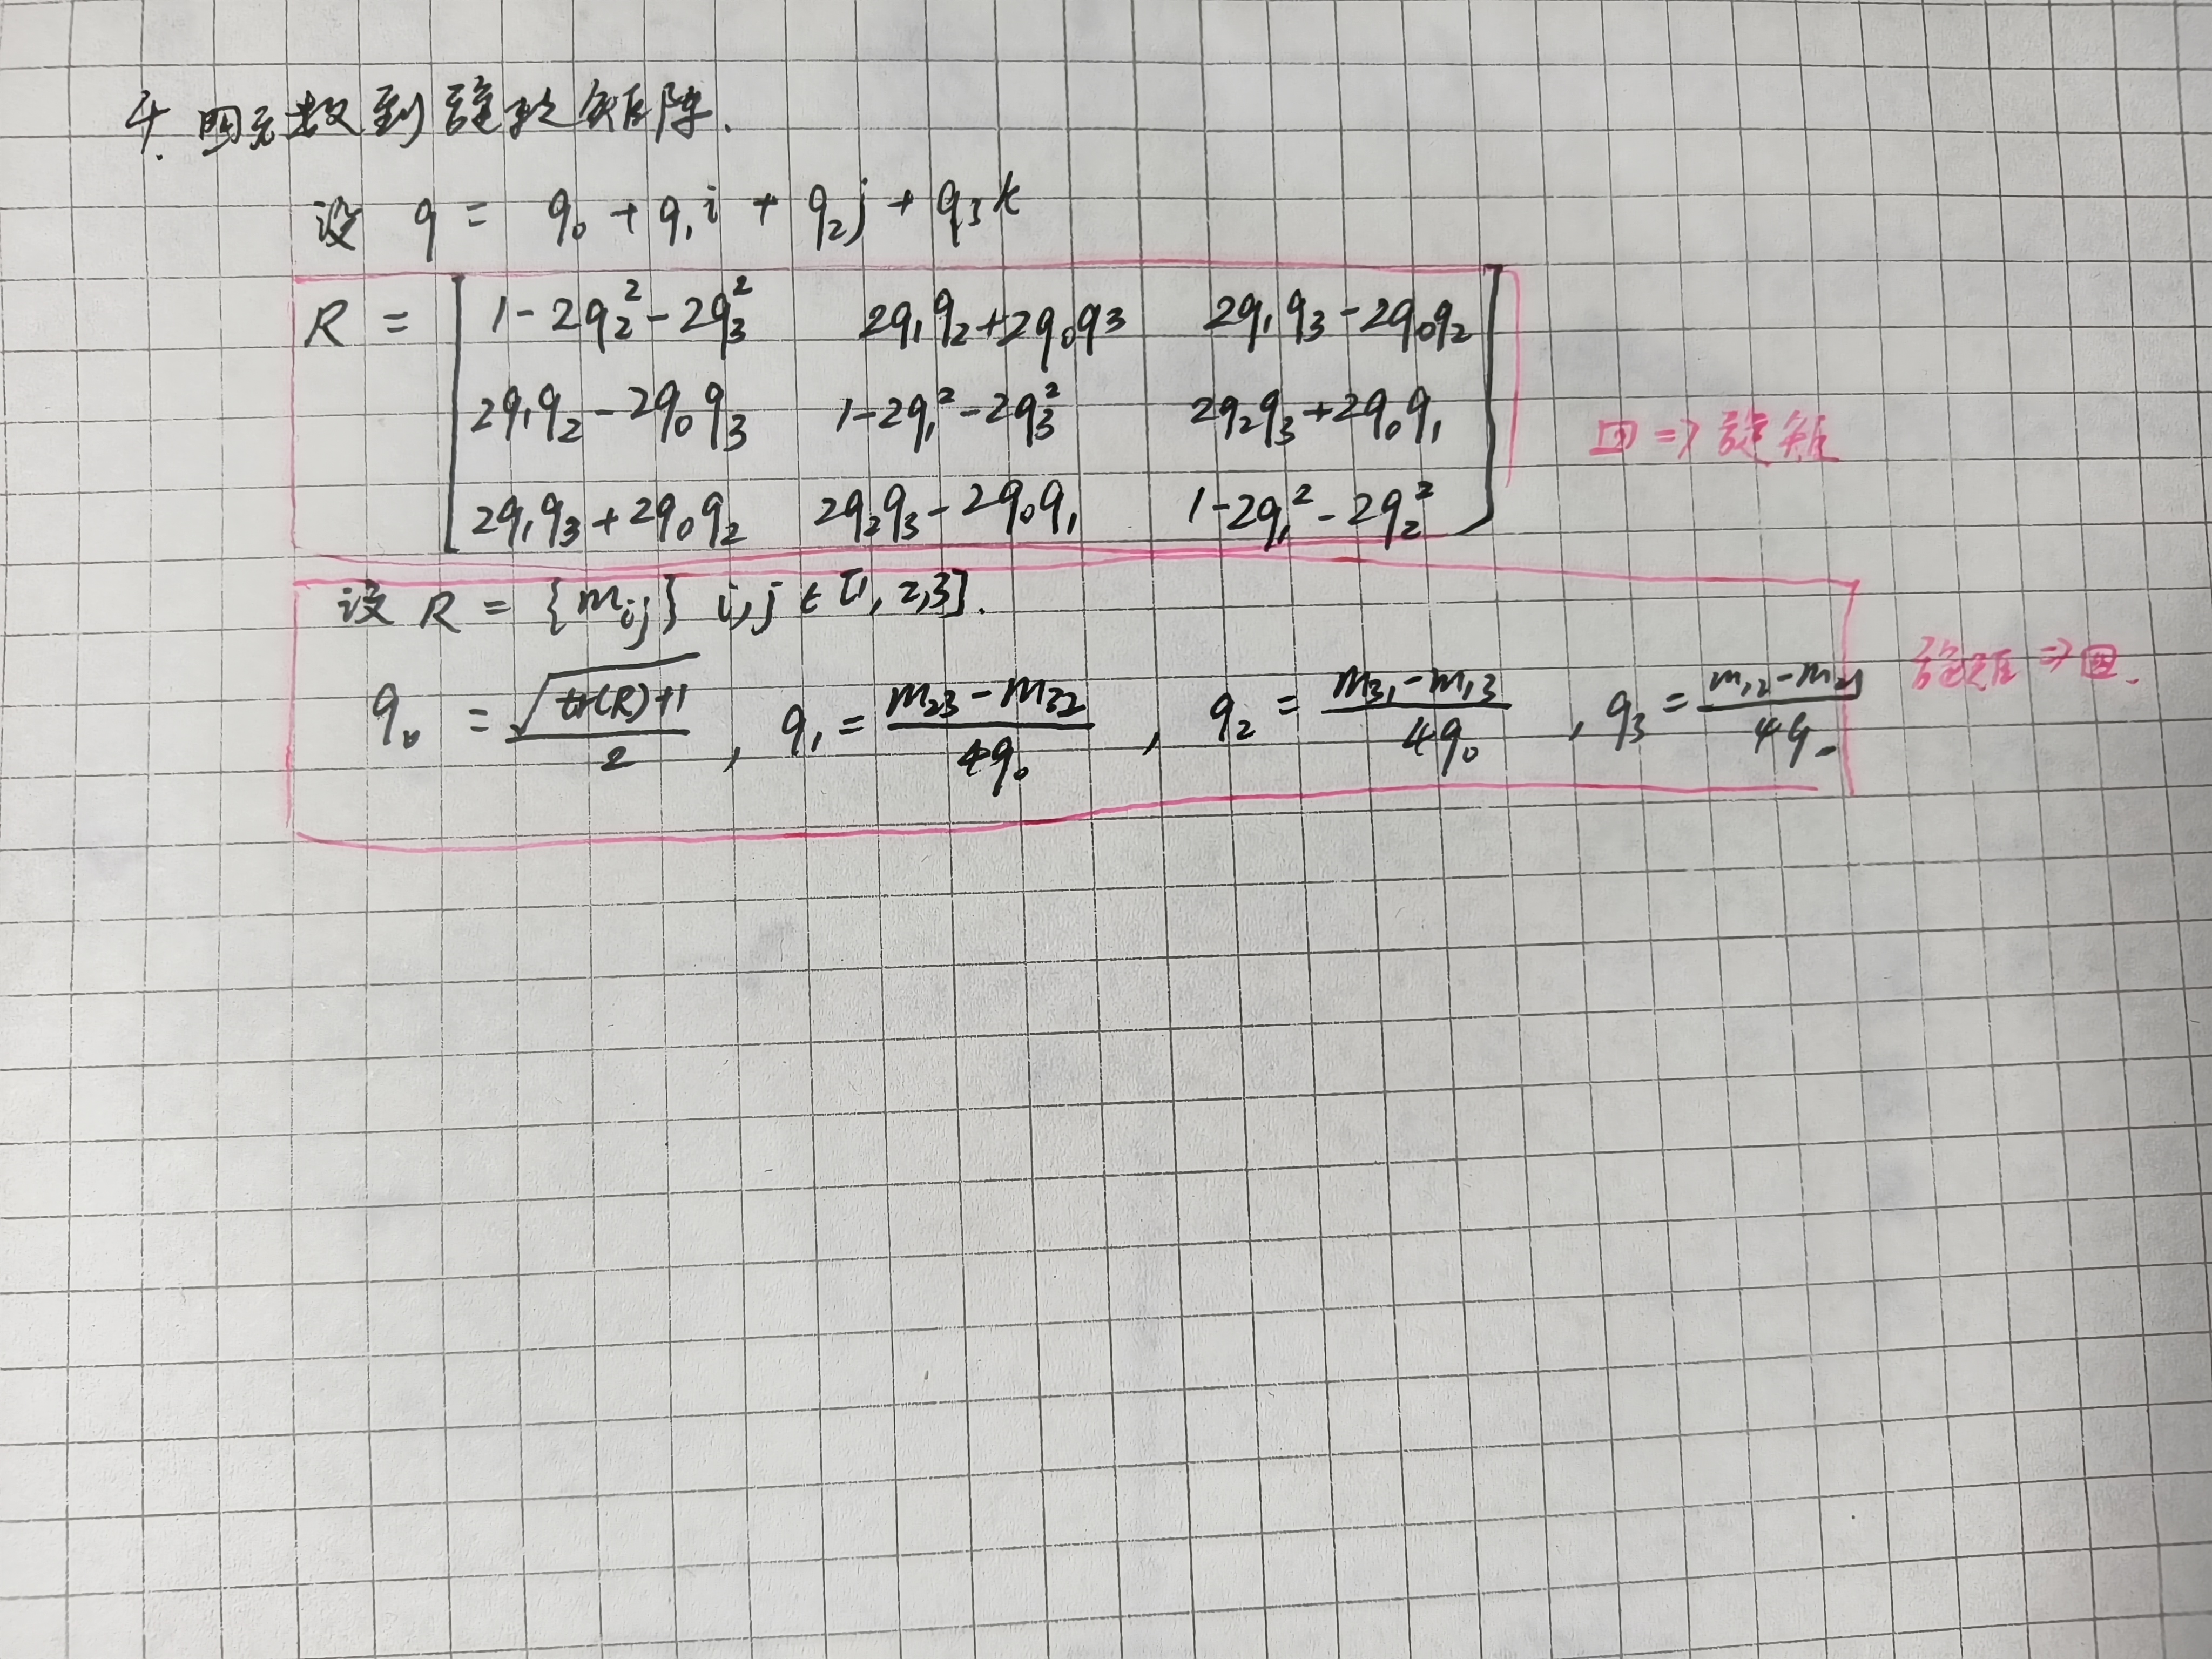 4. 四元数到旋转矩阵.
设 q = q₀ + q₁i + q₂j + q₃k
R = [ 1-2q₂²-2q₃² 2q₁q₂+2q₀q₃ 2q₁q₃-2q₀q₂
2q₁q₂-2q₀q₃ 1-2q₁²-2q₃² 2q₂q₃+2q₀q₁
2q₁q₃+2q₀q₂ 2q₂q₃-2q₀q₁ 1-2q₁²-2q₂² ]
四 => 旋矩
设 R = {mᵢⱼ} i,j ∈ [1, 2,3].
q₀ = √(tr(R)+1)/2 , q₁ = (m₂₃-m₃₂)/4q₀ , q₂ = (m₃₁-m₁₃)/4q₀ , q₃ = (m₁₂-m₂₁)/4q₀
旋矩 => 四.